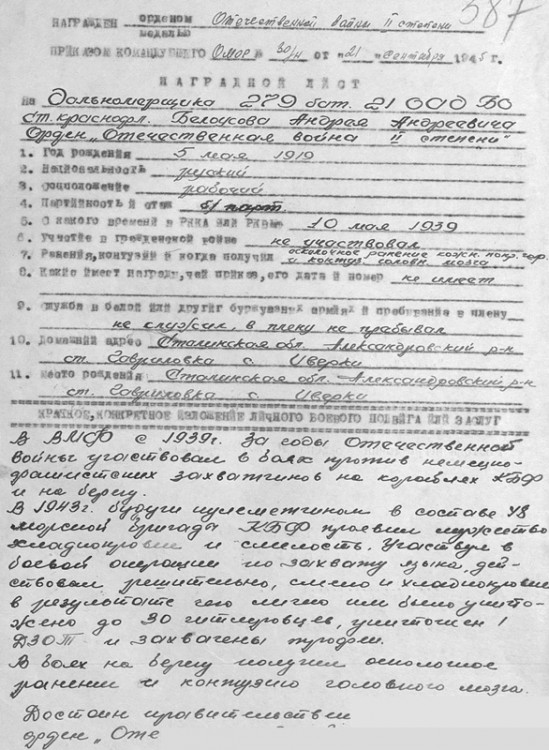 587
НАГРАЖДЕН орденом Отечественной войны II степени
медалью
ПРИКАЗОМ КОМАНДУЮЩЕГО ОМОР № 30/н от "21" сентября 1945 г.
НАГРАДНОЙ ЛИСТ
На Дальномерщика 279 бат. 21 ОАД БО
ст. краснофл. Белоусова Андрея Андреевича
Орден „Отечественная война II степени"
1. Год рождения 5 мая 1919
2. Национальность русский
3. Соцположение рабочий
4. Партийность и стаж б/парт.
5. С какого времени в РККА или РКВМФ 10 мая 1939
6. Участие в гражданской войне не участвовал
7. Ранения, контузии и когда получил осколочное ранение кожн. покр. чер.
и контуз. головн. мозга
8. Какие имеет награды, чей приказ, его дата и номер не имеет
9. Служба в белой или других буржуазных армиях и пребывания в плену
не служил, в плену не прабывал
10. Домашний адрес Сталинская обл. Александровский р-н
ст. Гавриловка с. Иверки
11. Место рождения Сталинская обл. Александровский р-н
ст. Гавриловка с. Иверки
КРАТКОЕ, КОНКРЕТНОЕ ИЗЛОЖЕНИЕ ЛИЧНОГО БОЕВОГО ПОДВИГА ИЛИ ЗАСЛУГ
В ВМФ с 1939г. За годы Отечественной
Войны участвовал в боях против немецко-
фашистских захватчиков на кораблях КБФ
и на берегу.
В 1943г. будучи пулеметчиком в составе
морской бригады КБФ проявил мужество
хладнокровие и смелость. Участвуя в
боевой операции по захвату языка, дей-
ствовал решительно, смело и хладнокровно
в результате чего лично им было уничто-
жено до 30 гитлеровцев, уничтожен 1
ДЗОТ и захвачены трофеи.
В боях на берегу получил осколочное
ранение и контузию головного мозга.
Достоин правительствен
орден „Оте